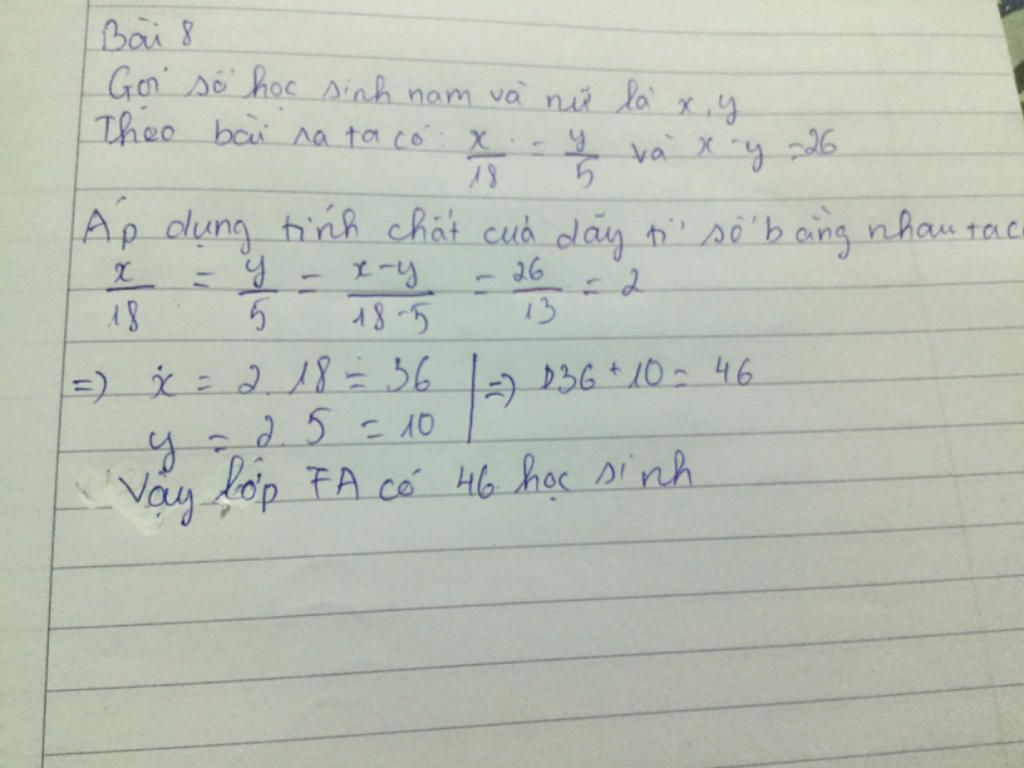 Bài 8
Gọi số học sinh nam và nữ là x, y
Theo bài ra ta có: x/18 = y/5 và x - y = 26
Áp dụng tính chất của dãy tỉ số bằng nhau ta c
x/18 = y/5 = x-y/18-5 = 26/13 = 2
=> x = 2. 18 = 36 | => 36 + 10 = 46
y = 2. 5 = 10
Vậy lớp 7A có 46 học sinh